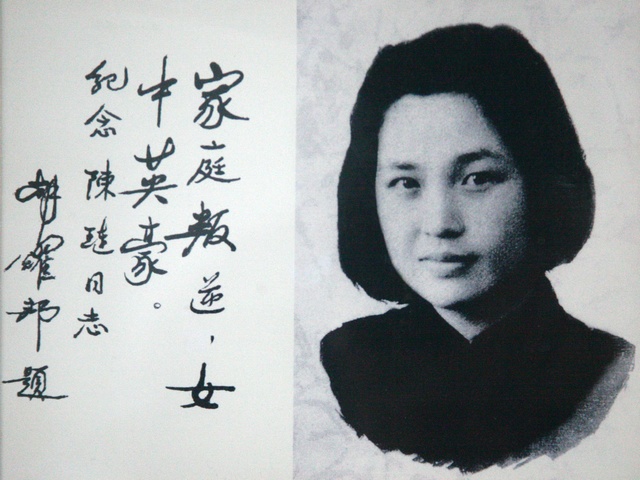 家庭叛逆，女
中英豪。
纪念陈琏同志
胡耀邦题